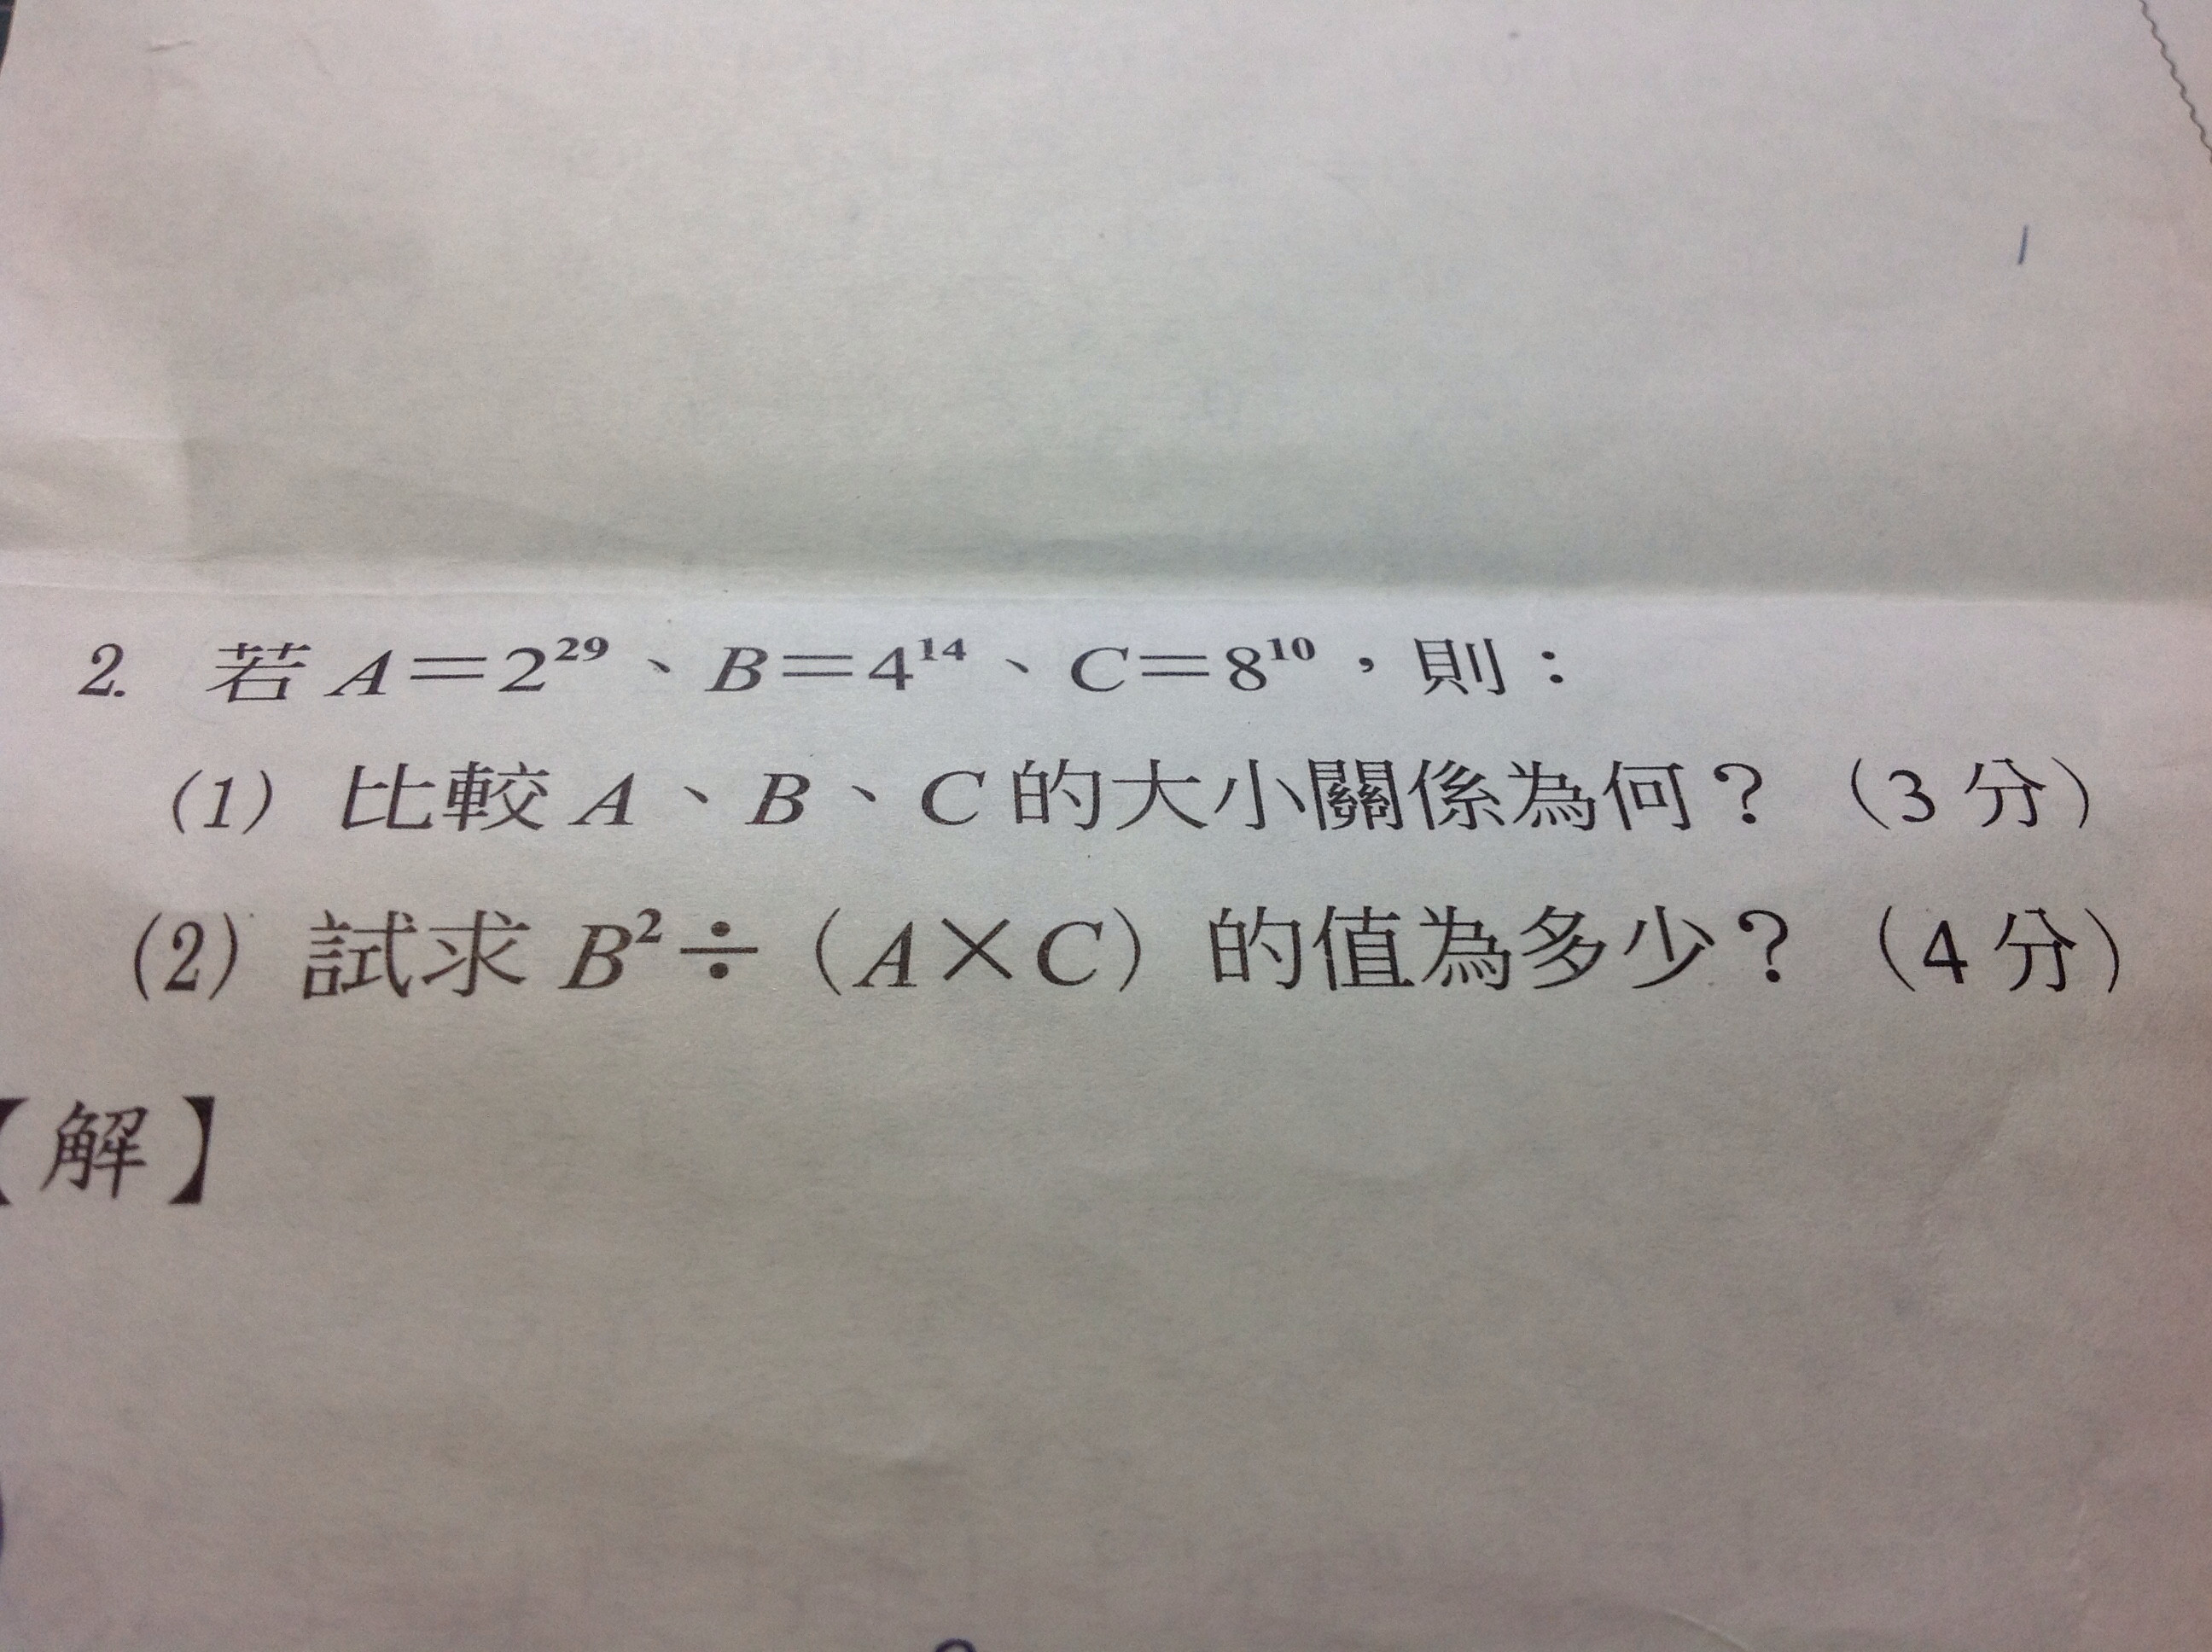 2. 若 A＝2²⁹、B＝4¹⁴、C＝8¹⁰，則：
(1) 比較 A、B、C 的大小關係為何？（3 分）
(2) 試求 B²÷（A×C）的值為多少？（4 分）
【解】